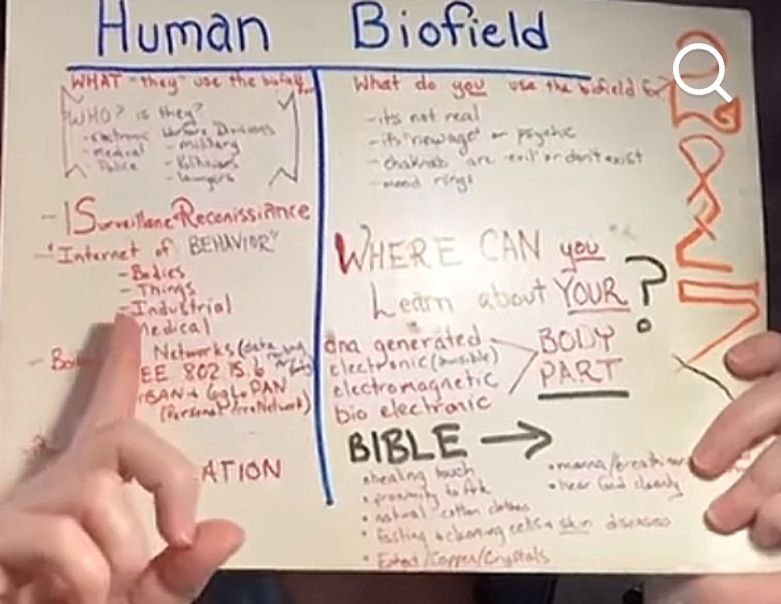 Human Biofield
WHAT "they" use the biofield
WHO? is they?
- electronic Warfare Divisions
- medical - military
Police
- lawyers
- ISurveillance Reconissiance
- "Internet of BEHAVIOR"
- Bodies
- Things
- Industrial
Medical
Networks (data
EE 802.15.6
BAN + 6g to PAN
(Personal Area Network)
ATION
What do you use the biofield for?
- its not real
- its "new age" or psychic
- chakras are "evil" or don't exist
- mood rings
WHERE CAN you
Learn about YOUR ?
dna generated
electronic (invisible)
electromagnetic
bio electronic
BODY
PART
BIBLE →
• healing touch
• proximity to Ark
• natural cotton clothes
• fasting + cleaning cells + skin diseases
• /Copper/Crystals
• manna/breath
• hear God clearly